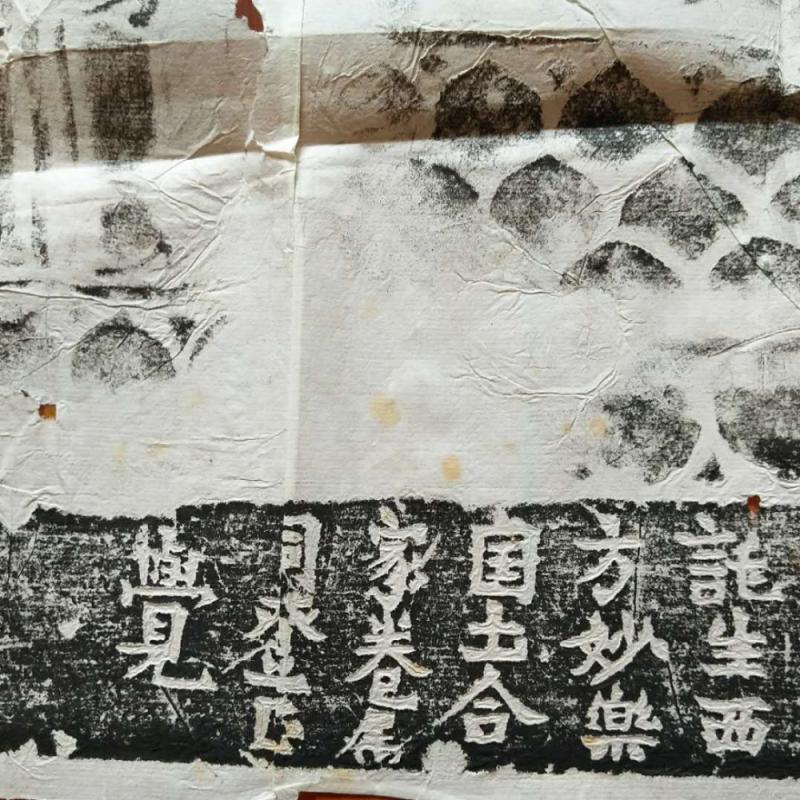 託生西
方妙樂
国土合
家眷属
同登正
覺